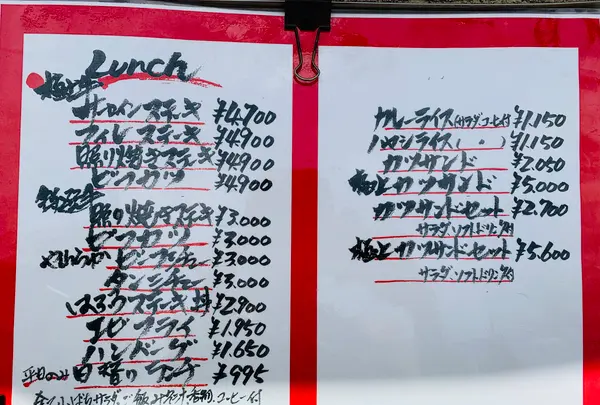 Lunch
極上牛
サーロインステーキ ¥4,700
フィレステーキ ¥4,900
照り焼きステーキ ¥4,900
ビーフカツ ¥4,900
照り焼きステーキ ¥3,000
ビーフカツ ¥3,000
やわらか ビーフシチュー ¥3,000
タンシチュー ¥3,000
ステーキ丼 ¥2,900
エビフライ ¥1,950
ハンバーグ ¥1,650
平日のみ 日替りランチ ¥995
サラダ、ご飯、コーヒー付
カレーライス(サラダ、コーヒー付) ¥1,150
ハヤシライス( 〃 ) ¥1,150
カツサンド ¥2,050
極上カツサンド ¥5,000
カツサンドセット ¥2,700
サラダ、ソフトドリンク付
極上カツサンドセット ¥5,600
サラダ、ソフトドリンク付